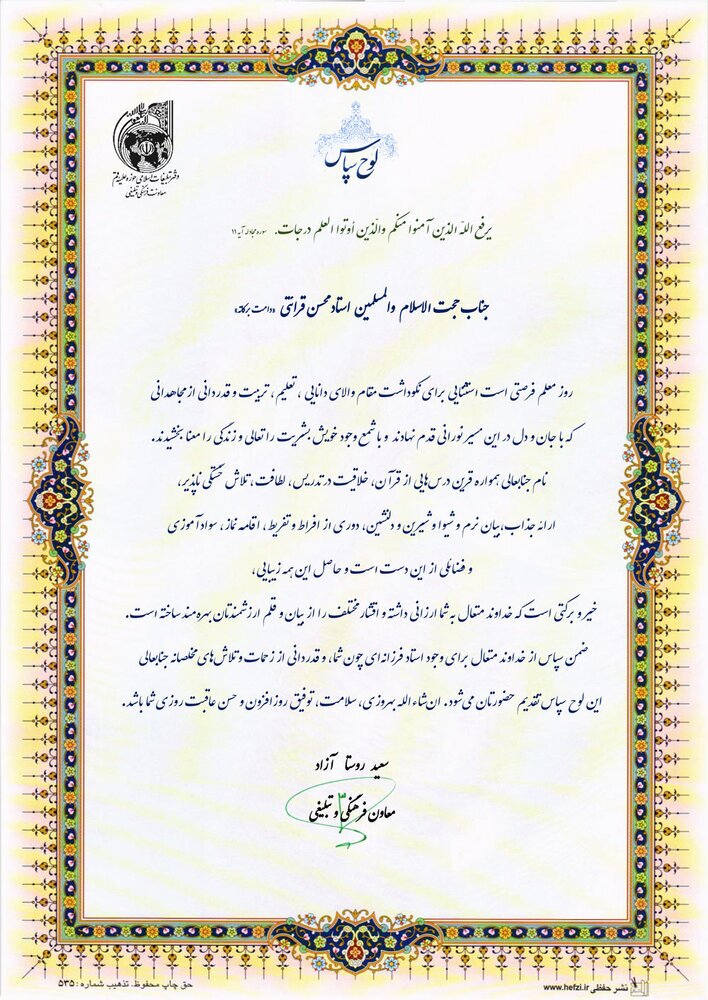 لوح سپاس
دفتر تبلیغات اسلامی حوزه علمیه قم
معاونت فرهنگی و تبلیغی
یرفع اللّه الذین آمنوا منکم والّذین أوتوا العلم درجات. سوره مجادله آیه ۱۱
جناب حجت الاسلام والمسلمین استاد محسن قرائتی «دامت برکاته»
روز معلم فرصتی است استثنایی برای نکوداشت مقام والای دانایی، تعلیم، تربیت و قدردانی از مجاهدانی
که با جان و دل در این مسیر نورانی قدم نهادند و با شمع وجود خویش بشریت را تعالی و زندگی را معنا بخشیدند.
نام جنابعالی همواره قرین درس‌هایی از قرآن، خلاقیت در تدریس، لطافت، تلاش خستگی ناپذیر،
ارائه جذاب، بیان نرم و شیوا و شیرین و دلنشین، دوری از افراط و تفریط، اقامه نماز، سوادآموزی
و فضائلی از این دست است و حاصل این همه زیبایی،
خیر و برکتی است که خداوند متعال به شما ارزانی داشته و اقشار مختلف را از بیان و قلم ارزشمندتان بهره مند ساخته است.
ضمن سپاس از خداوند متعال برای وجود استاد فرزانه‌ای چون شما، و قدردانی از زحمات و تلاش‌های مخلصانه جنابعالی
این لوح سپاس تقدیم حضورتان می‌شود. ان‌شاءالله بهروزی، سلامت، توفیق روزافزون و حسن عاقبت روزی شما باشد.
سعید روستا آزاد
معاون فرهنگی و تبلیغی
نشر حفظی www.hefzi.ir
حق چاپ محفوظ. تذهیب شماره: ۵۳۵